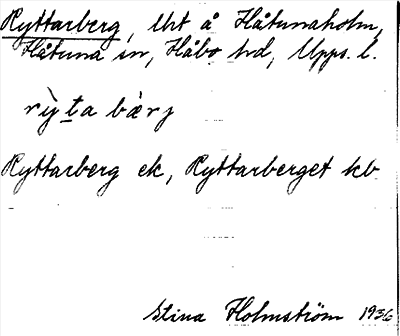 Ryttarberg, lht å Håtunaholm,
Håtuna sn, Håbo hd, Upps. l.
rỳt̲a bæ̀rj
Ryttarberg ek, Ryttarberget kb
Stina Holmström 1936